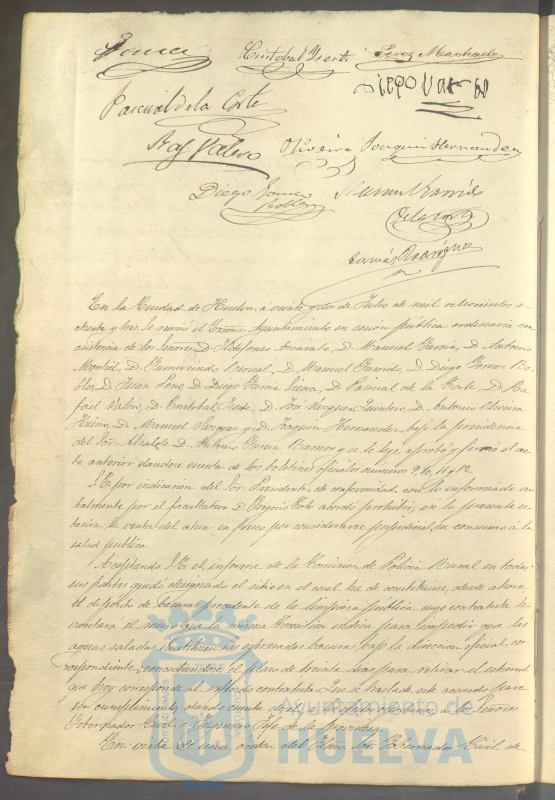 Cristobal Perez Machado
Diego Var
Pascual de la Corte
Raf Valero Oliveira Joaquin Hernandez
Diego Gomez Manuel Garrido
Rodriguez
En la Ciudad de Huelva á veinte y dos de Julio de mil ochocientos o-
chenta y tres, se reunio el Excmo. Ayuntamiento en sesion pública ordinaria con
asistencia de los Señores, D. Ildefonso D. Manuel Garcia, D. Antonio
Montiel, D. Gumersindo Bernal, D. Manuel Garrido, D. Diego Gomez Ro-
bles, D. Juan D. Diego Garcia D. Pascual de la Corte, D. Ra-
fael Valero, D. Cristobal D. José Vazquez Quintero, D. Antonio Oliveira
D. Manuel Vazquez y D. Joaquin Hernandez bajo la presidencia
del Sor. Alcalde D. Antonio Garcia Ramos y se leyo, aprobó y firmó el ac-
ta anterior dandose cuenta de los boletines oficiales numeros 9, 10, 11 y 12.
S.E. por indicacion del Sor. Presidente, de conformidad con lo informado ver-
balmente por el facultativo D. acordo prohibir, en la presente es-
tacion, la venta del atun en fresco por considerarse perjudicial su consumo á la
salud publica.
Aceptando S.E. el informe de la Comision de Policia Rural en todas
sus partes quedo designado el sitio en el cual ha de constituirse, desde ahora
el deposito de basuras procedente de la limpieza pública cuyo contratista le-
vantará el muro que la misma Comision indica para impedir que las
aguas saladas las espresadas basuras, bajo la direccion oficial, cor-
respondiente, concediendose el plazo de treinta dias para retirar el estiercol
que hoy corresponde al referido contratista. Que se traslade este acuerdo para
su cumplimiento, dando cuenta de el á los Señores
Gobernador Civil é Ingeniero Jefe de la provincia.
En vista de una orden del Ilmo. Sor. Gobernador Civil de
Ayuntamiento de
HUELVA